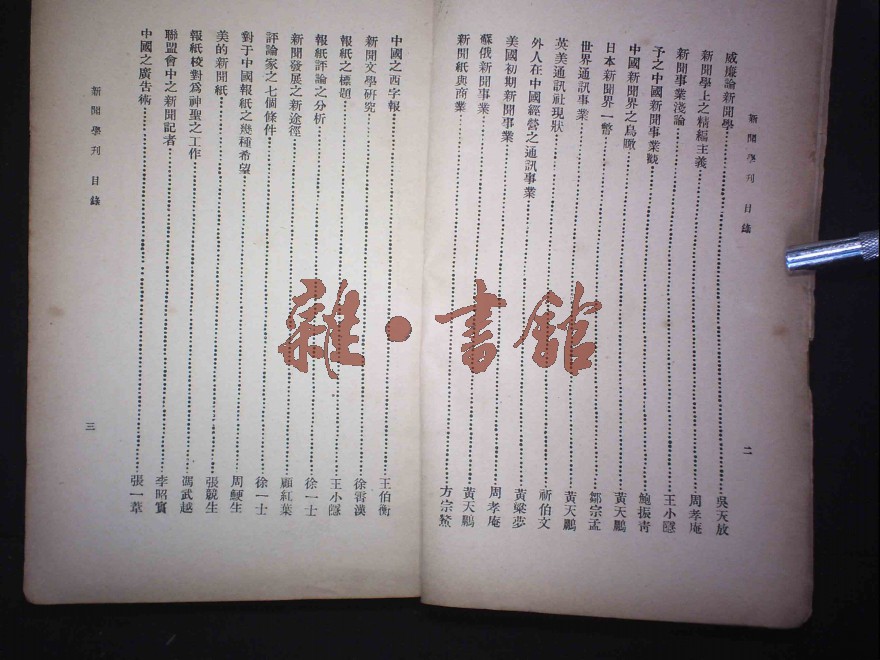 新聞學刊 目錄
二
威廉論新聞學……吳天放
新聞學上之精編主義……周孝庵
新聞事業淺論……王小隱
予之中國新聞事業觀……鮑振青
中國新聞界之鳥瞰……黃天鵬
日本新聞界一瞥……鄒宗孟
世界通訊事業……黃天鵬
英美通訊社現狀……祈伯文
外人在中國經營之通訊事業……黃粱夢
美國初期新聞事業……周孝庵
蘇俄新聞事業……黃天鵬
新聞紙與商業……方宗鰲
中國之西字報……王伯衡
新聞文學研究……徐霄漢
報紙之標題……王小隱
報紙評論之分析……徐一士
新聞發展之新途徑……顧紅葉
評論家之七個條件……徐一士
對于中國報紙之幾種希望……周鯁生
美的新聞紙……張競生
報紙校對為神聖之工作……馮武越
聯盟會中之新聞記者……李昭實
中國之廣告術……張一葦
新聞學刊 目錄
三
雜·書館